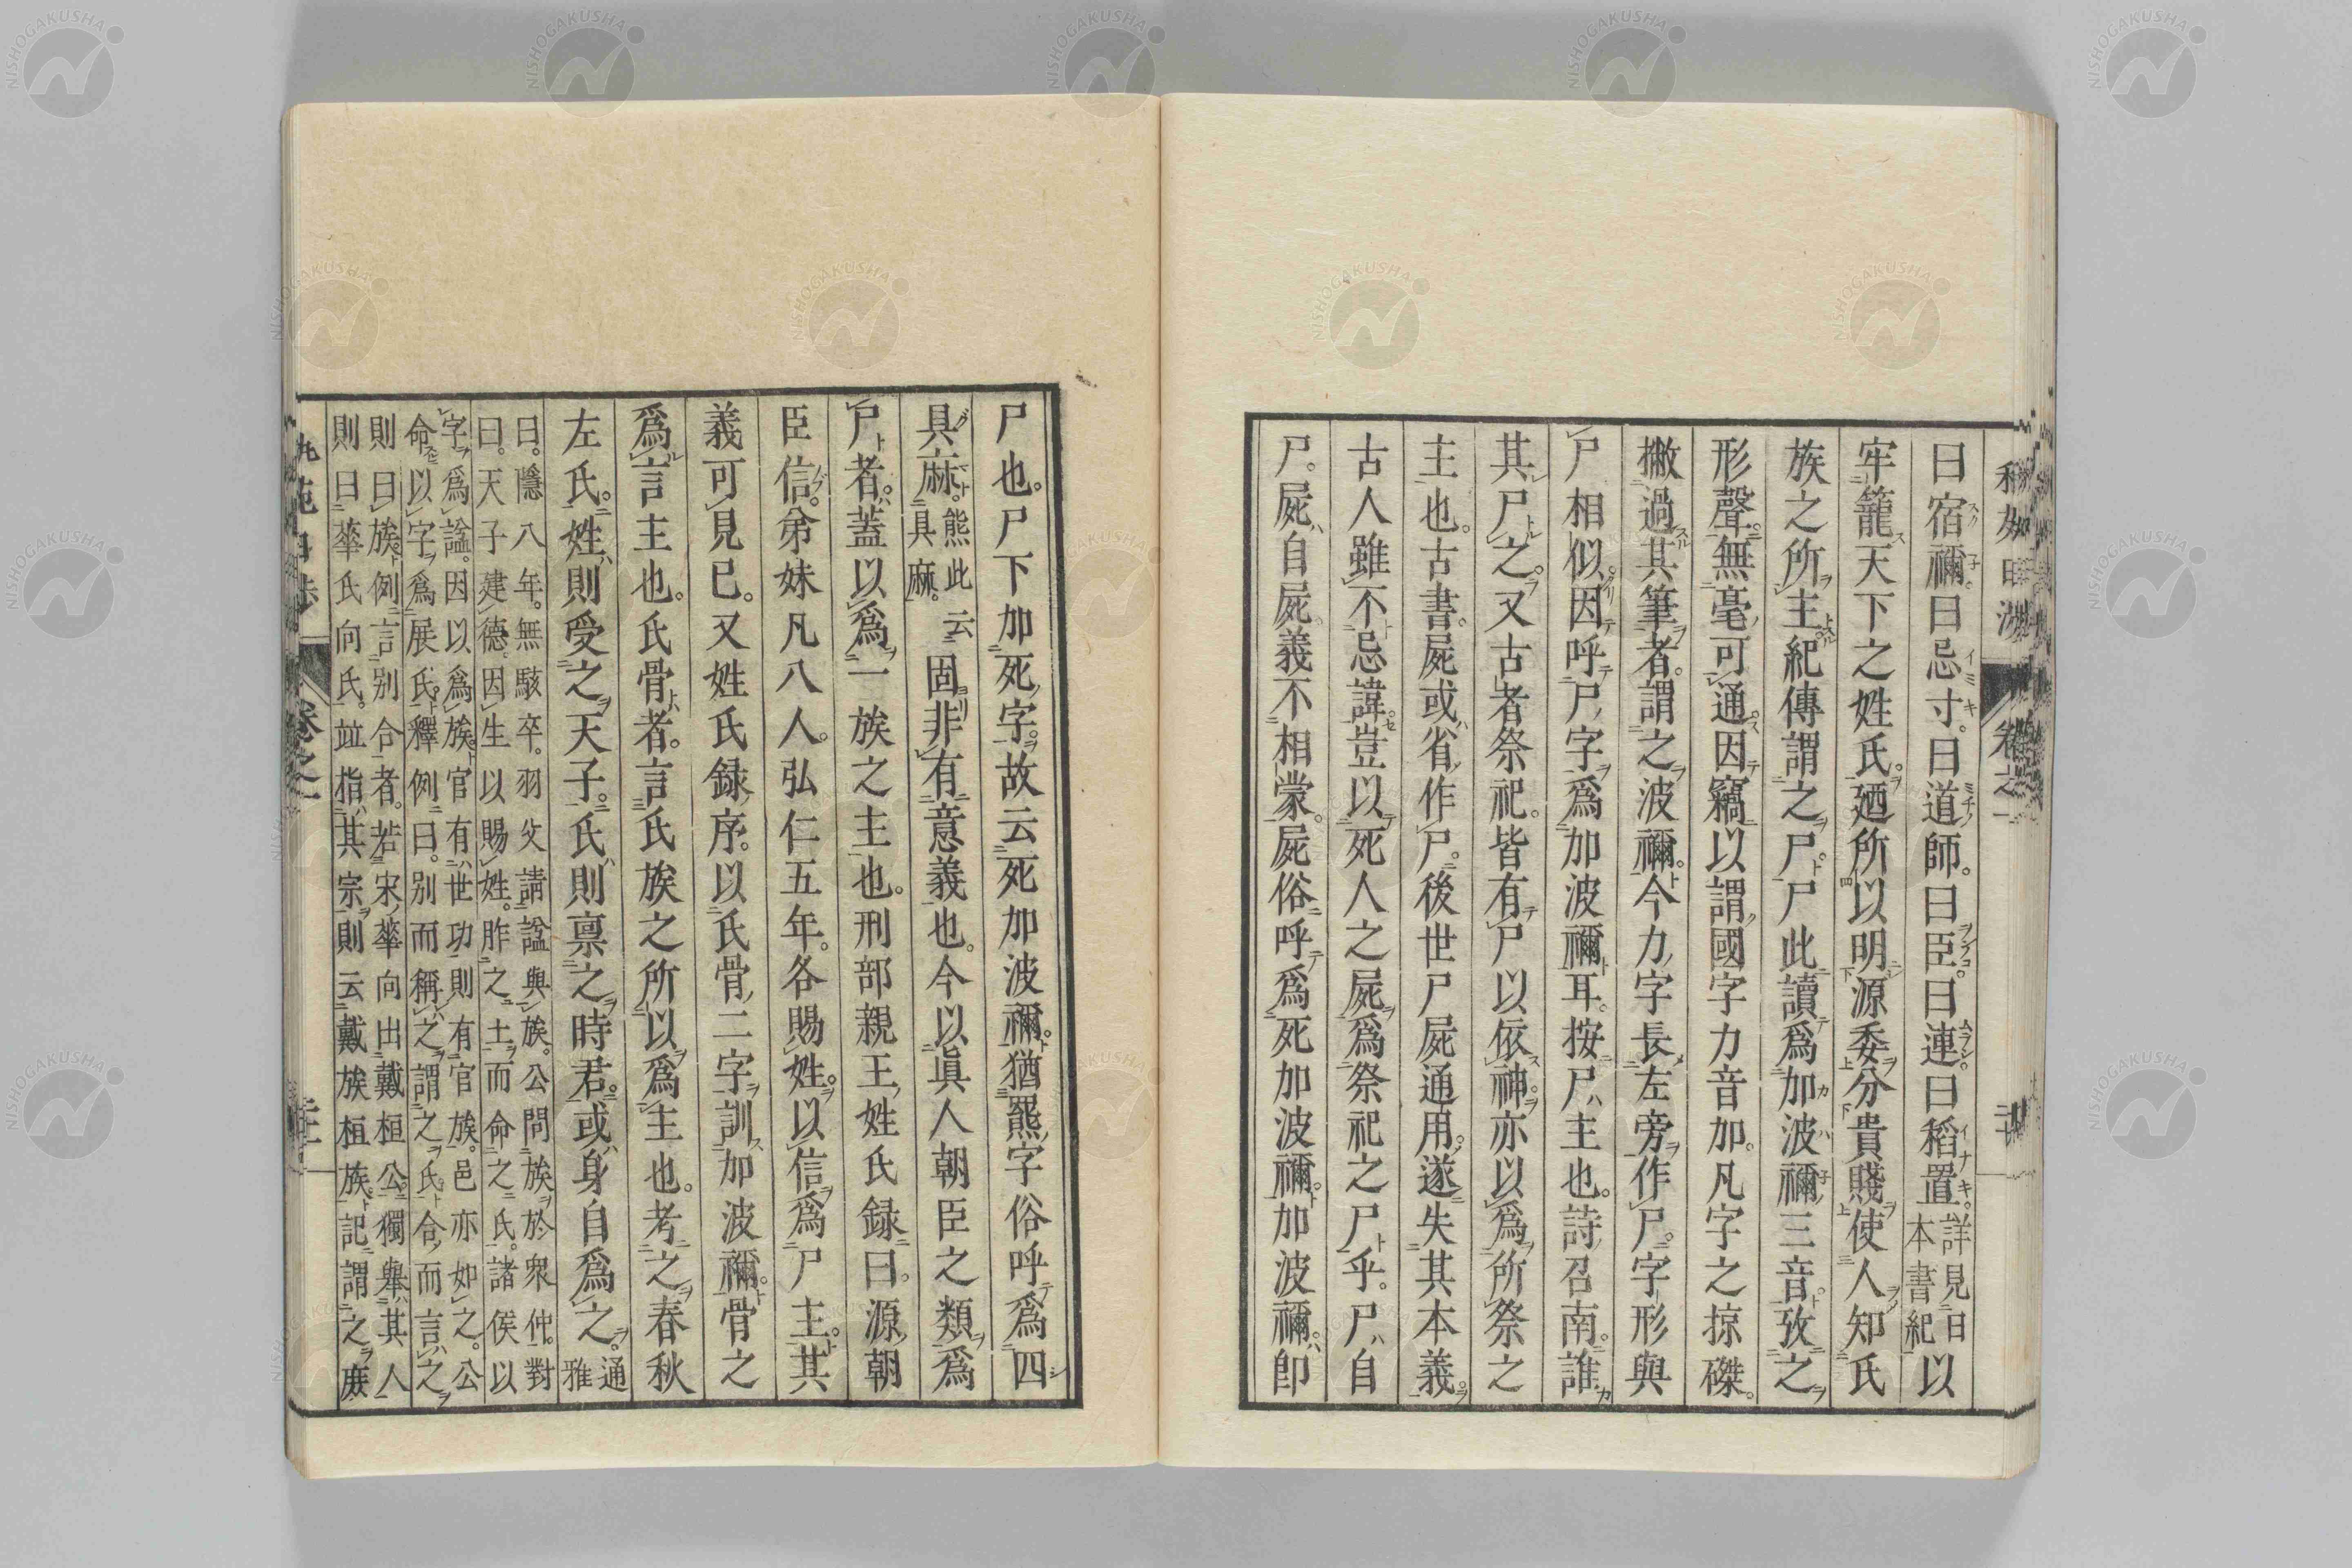 曰宿禰。曰忌寸。曰道師。曰臣。曰連。曰稻置。詳見日本書紀以
牢籠天下之姓氏。廼所以明源委分貴賤使人知氏
族之所主紀傳謂之尸。尸此讀爲加波禰三音攷之
形聲。無毫可通。因竊以謂國字力音加。凡字之掠磔。
撇過其筆者。謂之波禰。今力字長左旁作尸。字形與
尸相似。因呼尸字爲加波禰耳。按尸主也。詩召南。誰
其尸之。又古者祭祀。皆有尸以依神。亦以爲所祭之
主也。古書。屍或省作尸。後世尸屍通用。遂失其本義。
古人雖不忌諱。豈以死人之屍爲祭祀之尸乎。尸自
尸。屍自屍。義不相蒙。屍俗呼爲死加波禰。加波禰。即
尸也。尸下加死字。故云死加波禰。猶羆字俗呼爲四
具麻。熊此云具麻。固非有意義也。今以眞人朝臣之類爲
尸者。蓋以爲一族之主也。刑部親王姓氏録曰。源朝
臣信。弟妹凡八人。弘仁五年。各賜姓。以信爲尸主。其
義可見已。又姓氏録序。以氏骨二字訓加波禰。骨之
爲言主也。氏骨者。言氏族之所以爲主也。考之春秋
左氏。姓則受之天子。氏則禀之時君。或身自爲之。通雅
曰。隱八年。無駭卒。羽父請諡與族。公問族於衆仲。對
曰。天子建德。因生以賜姓。胙之土而命之氏。諸侯以
字爲諡。因以爲族。官有世功則有官族。邑亦如之。公
命以字爲展氏。釋例曰。別而稱之謂之氏。合而言之
則曰族。例言別合者。若宋華向出戴桓公。獨舉其人
則曰華氏向氏。竝指其宗則云戴族桓族。記謂之庶
卷之一
卷之一